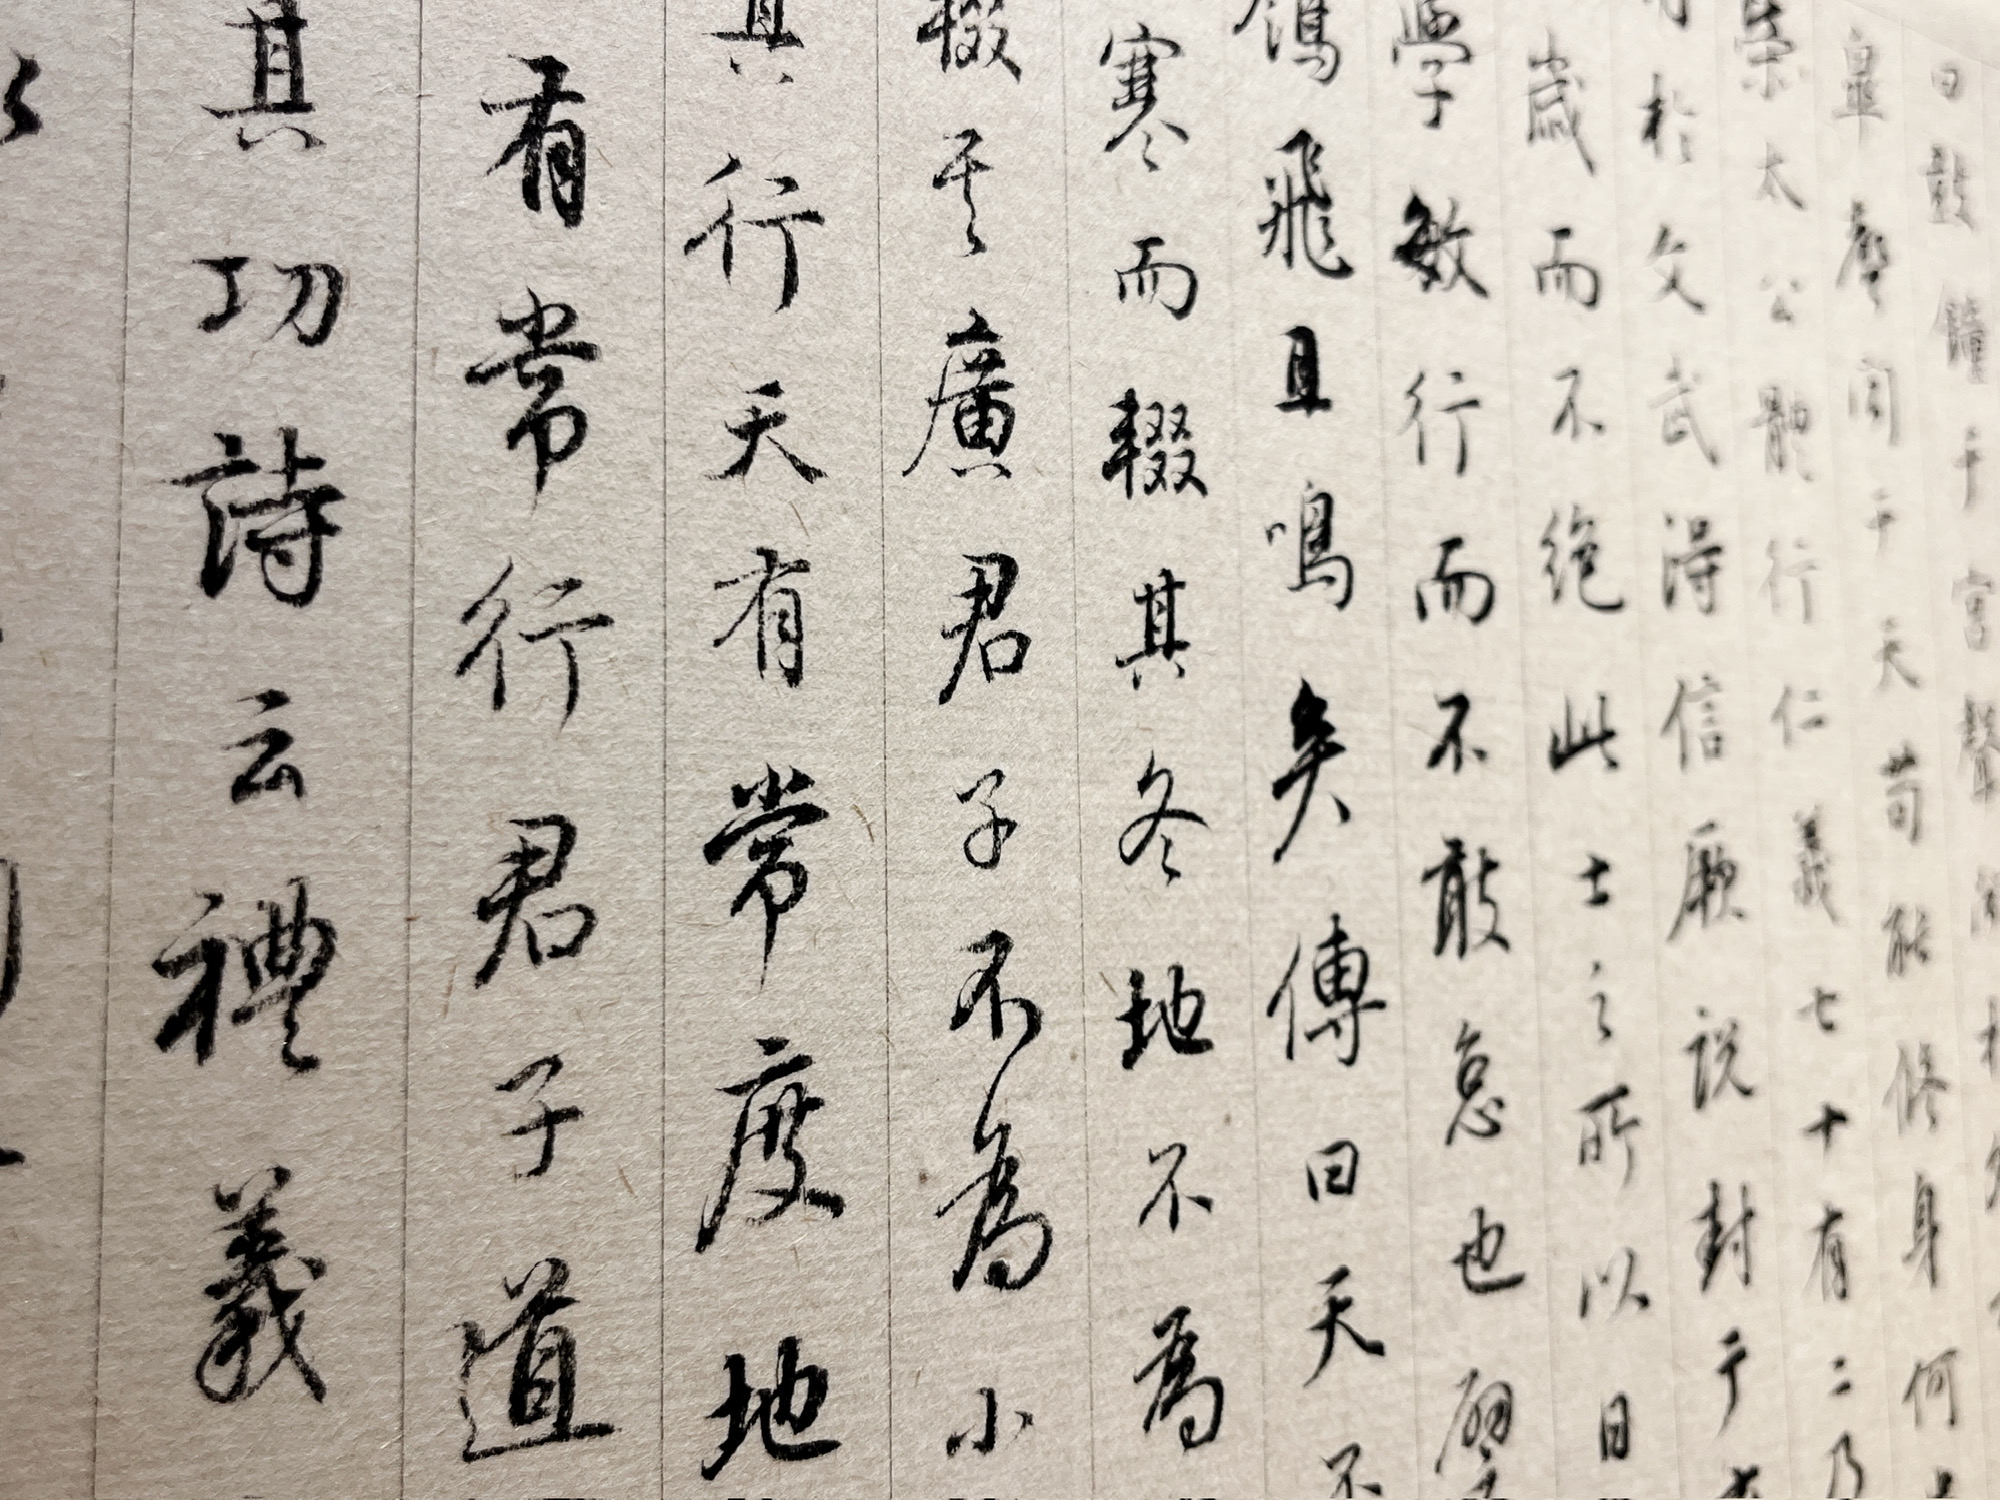 曰鼓鐘于宮聲聞
皋聲聞于天苟能修身何
榮太公體行仁義七十有二乃
於文武得信厥說封于
歲而不絕此士之所以日
學敏行而不敢怠也譬
鴒飛且鳴矣傳曰天不
寒而輟其冬地不為
輟其廣君子不為小
其行天有常度地
有常行君子道
其功詩云禮義